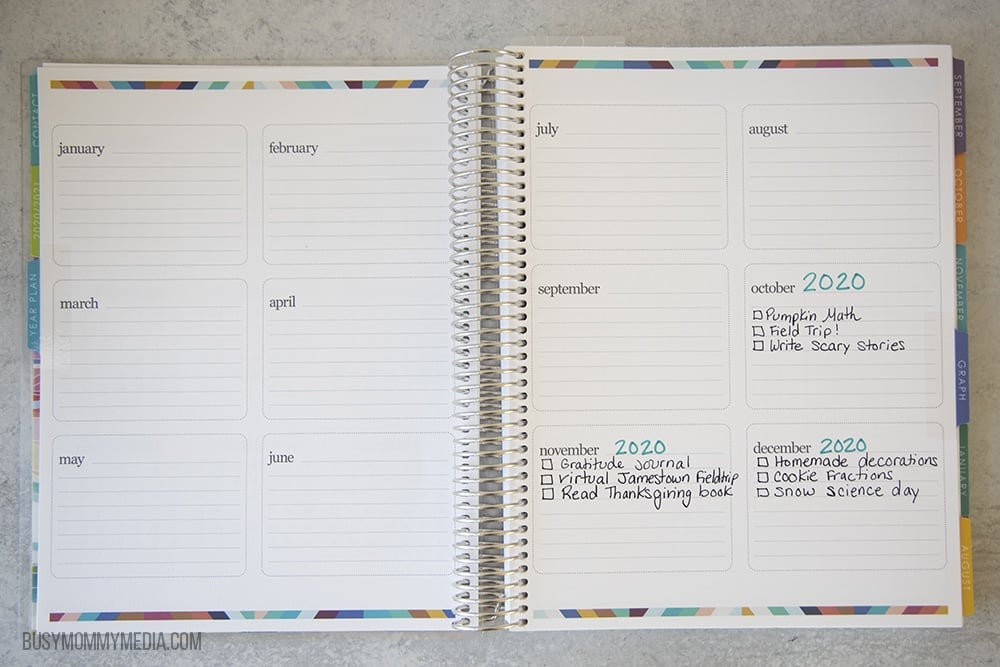 CONTACT
2020/2021
YEAR PLAN
january
february
march
april
may
june
july
august
september
october 2020
Pumpkin Math
Field Trip!
Write Scary Stories
november 2020
Gratitude Journal
Virtual Jamestown Fieldtrip
Read Thanksgiving book
december 2020
Homemade decorations
Cookie Fractions
Snow Science day
SEPTEMBER
OCTOBER
NOVEMBER
GRAPH
JANUARY
AUGUST
BUSYMOMMYMEDIA.COM